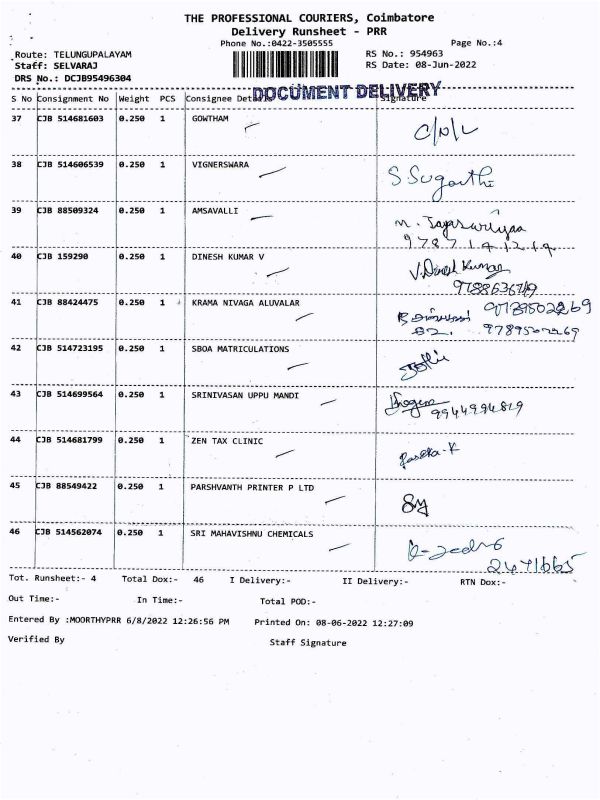 THE PROFESSIONAL COURIERS, Coimbatore
Delivery Runsheet - PRR
Phone No.:0422-3505555 Page No.:4
Route: TELUNGUPALAYAM RS No.: 954963
Staff: SELVARAJ RS Date: 08-Jun-2022
DRS No.: DCJB95496304
DOCUMENT DELIVERY
S No Consignment No Weight PCS Consignee Details Signature
37 CJB 514681603 0.250 1 GOWTHAM C/N/L
38 CJB 514606539 0.250 1 VIGNERSWARA S. Suganthi
39 CJB 88509324 0.250 1 AMSAVALLI
40 CJB 159290 0.250 1 DINESH KUMAR V V. Dinesh Kumar
41 CJB 88424475 0.250 1 KRAMA NIVAGA ALUVALAR
9789502269
42 CJB 514723195 0.250 1 SBOA MATRICULATIONS
43 CJB 514699564 0.250 1 SRINIVASAN UPPU MANDI
9944994819
44 CJB 514681799 0.250 1 ZEN TAX CLINIC
45 CJB 88549422 0.250 1 PARSHVANTH PRINTER P LTD
46 CJB 514562074 0.250 1 SRI MAHAVISHNU CHEMICALS
2471665
Tot. Runsheet:- 4 Total Dox:- 46 I Delivery:- II Delivery:- RTN Dox:-
Out Time:- In Time:- Total POD:-
Entered By :MOORTHYPRR 6/8/2022 12:26:56 PM Printed On: 08-06-2022 12:27:09
Verified By Staff Signature